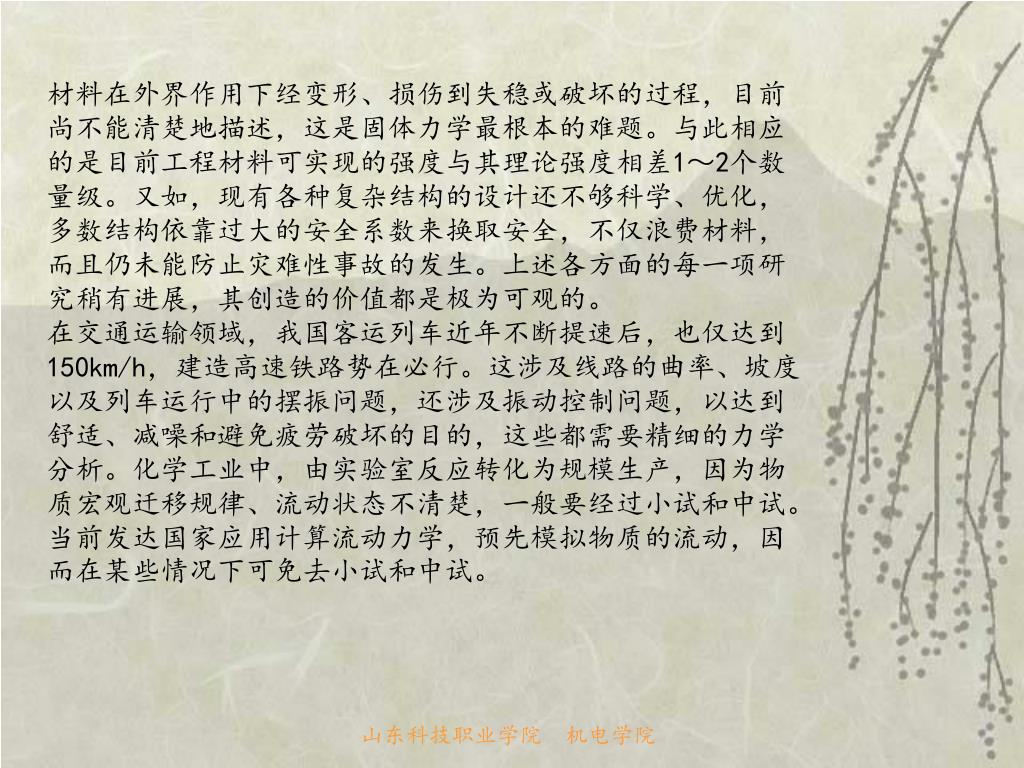 材料在外界作用下经变形、损伤到失稳或破坏的过程，目前
尚不能清楚地描述，这是固体力学最根本的难题。与此相应
的是目前工程材料可实现的强度与其理论强度相差1～2个数
量级。又如，现有各种复杂结构的设计还不够科学、优化，
多数结构依靠过大的安全系数来换取安全，不仅浪费材料，
而且仍未能防止灾难性事故的发生。上述各方面的每一项研
究稍有进展，其创造的价值都是极为可观的。
在交通运输领域，我国客运列车近年不断提速后，也仅达到
150km/h，建造高速铁路势在必行。这涉及线路的曲率、坡度
以及列车运行中的摆振问题，还涉及振动控制问题，以达到
舒适、减噪和避免疲劳破坏的目的，这些都需要精细的力学
分析。化学工业中，由实验室反应转化为规模生产，因为物
质宏观迁移规律、流动状态不清楚，一般要经过小试和中试。
当前发达国家应用计算流动力学，预先模拟物质的流动，因
而在某些情况下可免去小试和中试。
山东科技职业学院　机电学院